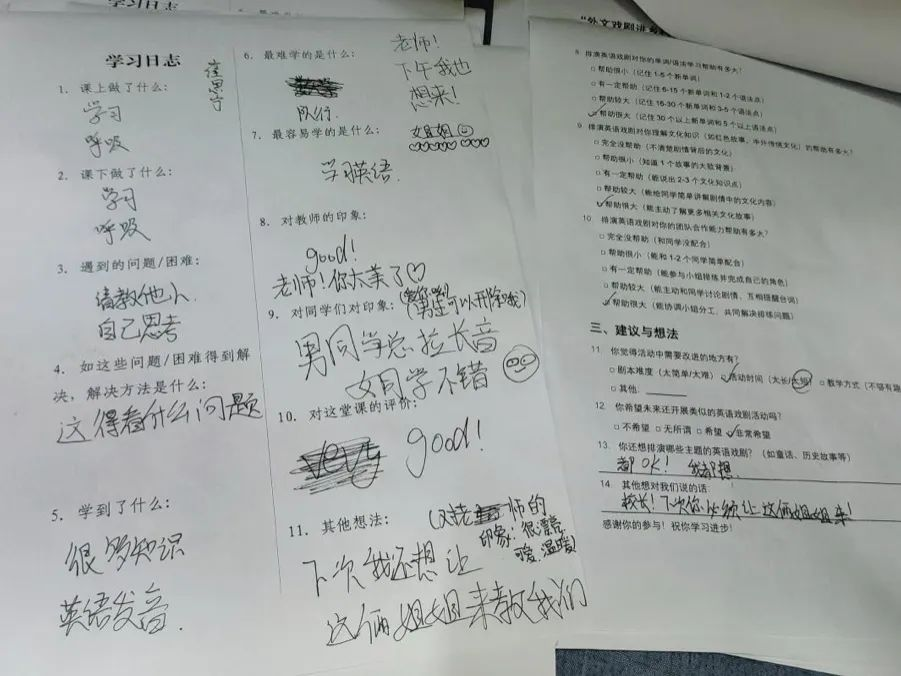 学习日志
"外文戏剧进
学习日志
1. 课上做了什么：
学习
呼吸
2. 课下做了什么：
学习
呼吸
3. 遇到的问题/困难：
请教他人
自己思考
4. 如这些问题/困难得到解
决，解决方法是什么：
这得看什么问题
5. 学到了什么：
很多知识
英语发音.
6. 最难学的是什么：
队行.
老师！
下午我也
想来！
姐姐
7. 最容易学的是什么：
学习英语.
8. 对教师的印象：
good!
老师！你太美了
9. 对同学们对印象：
男生可以开除我)
男同学总拉长音
女同学不错
10. 对这堂课的评价：
very good!
11. 其他想法：
(对老师的
印象：很漂亮
可爱.温暖)
下次我还想让
这俩姐姐来教我们
8 排演英语戏剧对你的单词/语法学习帮助有多大？
□ 帮助很小（记住 1-5 个新单词）
□ 有一定帮助（记住 6-15 个新单词和 1-2 个语法点）
□ 帮助较大（记住 16-30 个新单词和 3-5 语法点）
帮助很大（记住 30 个以上新单词和 5 个以上语法点）
9 排演英语戏剧对你理解文化知识（如红色故事、中外传统文化）的帮助有多大？
□ 完全没帮助（不清楚剧情背后的文化）
□ 帮助很小（知道 1 个故事的大致背景）
□ 有一定帮助（能说出 2-3 个文化知识点）
□ 帮助较大（能给同学简单讲解剧情中的文化内容）
帮助很大（能主动了解更多相关文化故事）
10. 排演英语戏剧对你的团队合作能力帮助有多大？
□ 完全没帮助（和同学没配合）
□ 帮助很小（能和 1-2 个同学简单配合）
□ 有一定帮助（能参与小组排练并完成自己的角色）
□ 帮助较大（能主动和同学讨论剧情、互相提醒台词）
帮助很大（能协调小组分工，共同解决排练问题）
三、建议与想法
11. 你觉得活动中需要改进的地方有？
□ 剧本难度（太简单/太难） 活动时间（太长/太短） □ 教学方式（不够有趣
□ 其他：
12 你希望未来还开展类似的英语戏剧活动吗？
□ 不希望 □ 无所谓 □ 希望 非常希望
13. 你还想排演哪些主题的英语戏剧？（如童话、历史故事等）
都OK! 我都想.
14. 其他想对我们说的话：
校长！下次你必须让这俩姐姐来！
感谢你的参与！祝你学习进步！